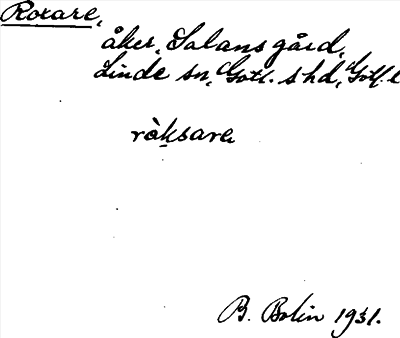 Roxare,
åker, Salansgård,
Linde sn, Gotl. s hd, Gotl. l
ròksarę
B. Bolin 1931.